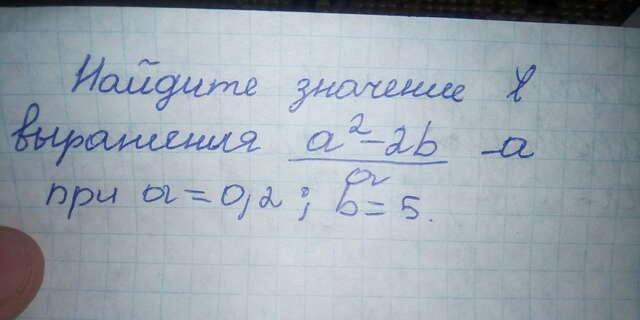 Найдите значение
выражения a²-2b/a -a
при a=0,2; b=5.